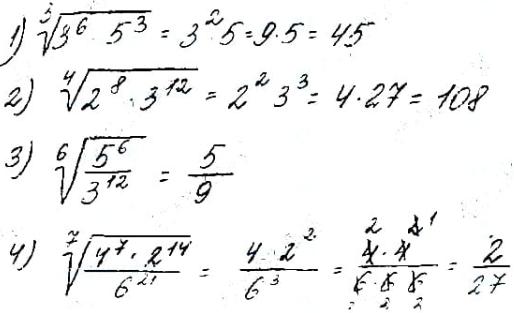 1) ∛(3⁶ 5³) = 3²5 = 9·5 = 45
2) ∜(2⁸ · 3¹²) = 2² 3³ = 4·27 = 108
3) ⁶√(5⁶/3¹²) = 5/9
4) ⁷√((4⁷ · 2¹⁴)/6²¹) = (4·2²)/6³ = (4·4)/(6·6·6) = 2/27